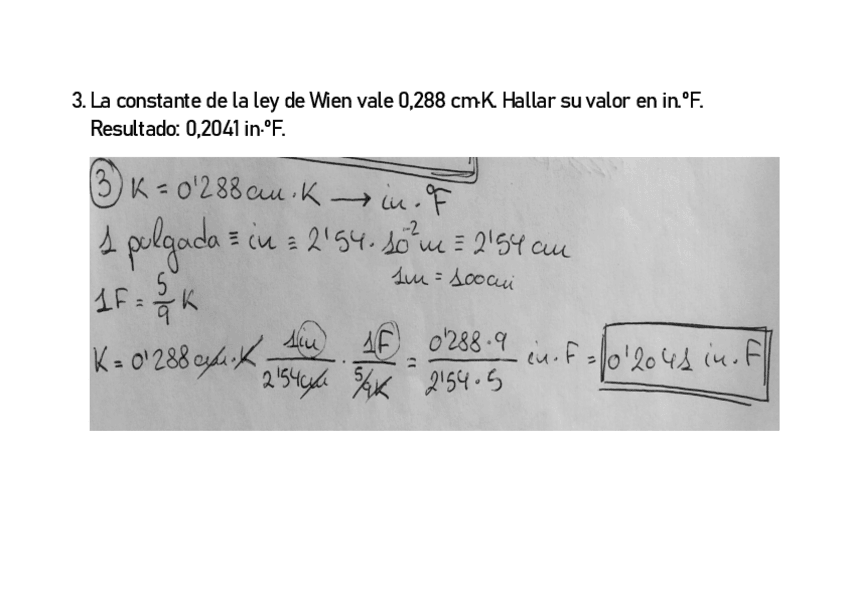 3. La constante de la ley de Wien vale 0,288 cm·K. Hallar su valor en in.ºF.
Resultado: 0,2041 in·ºF.
③ K = 0'288 cm . K → in . ºF
1 pulgada ≡ in ≡ 2'54 . 10⁻² m ≡ 2'54 cm
1m = 100cm
1F = 5/9 K
K = 0'288 cm . K 1in/2'54cm · 1F/5/9K = 0'288·9/2'54·5 in . F = 0'2041 in . F